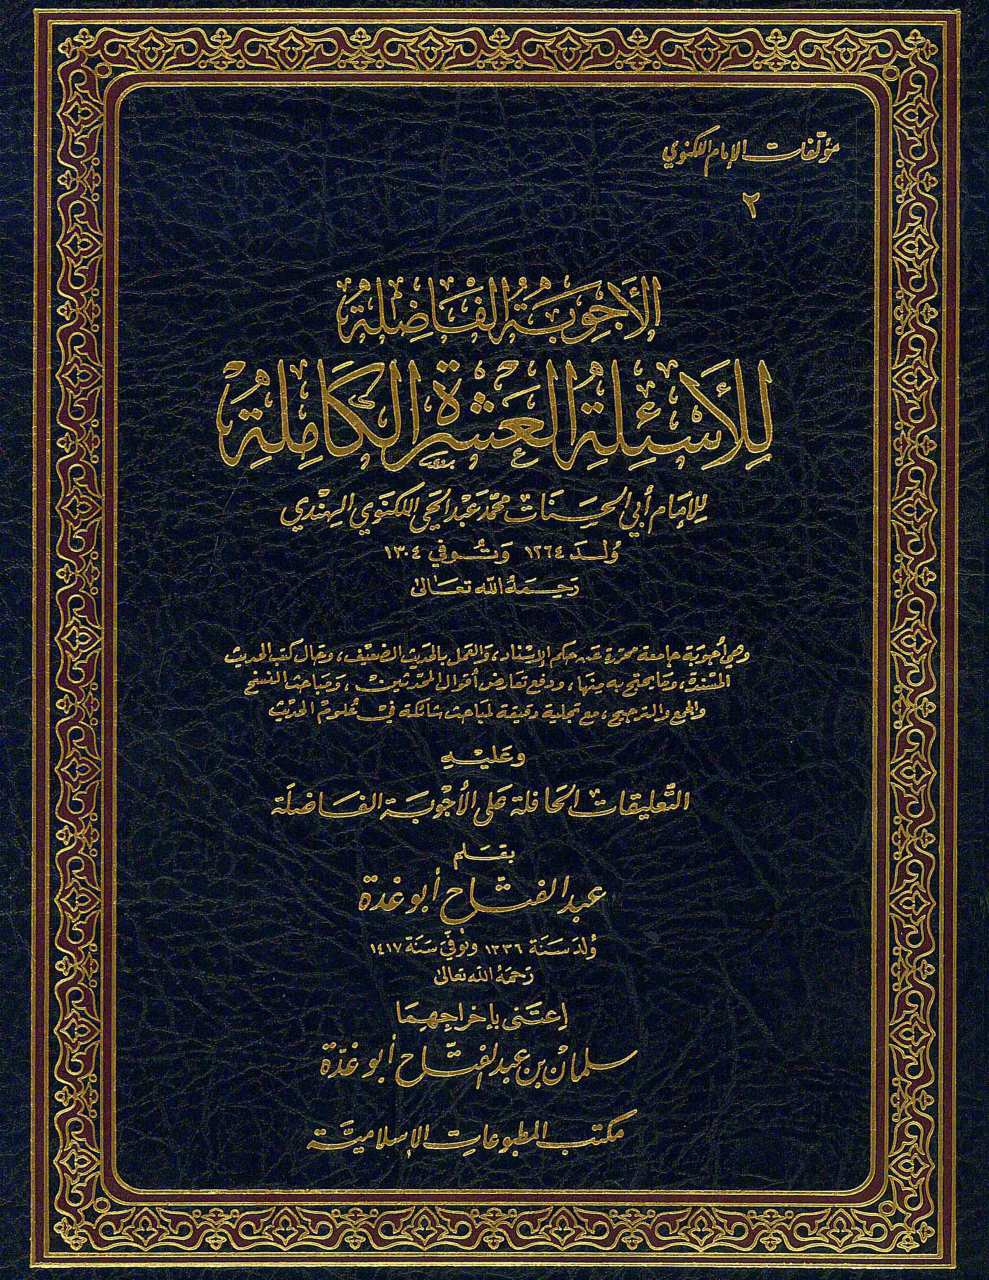 مؤلفات الإمام اللكنوي
٢
الأجوبة الفاضلة
للأسئلة العشرة الكاملة
للإمام أبي الحسنات محمد عبد الحي اللكنوي الهندي
ولد ١٢٦٤ وتوفي ١٣٠٤
رحمه الله تعالى
وهي أجوبة جامعة محررة عن حكم الإسناد، والعمل بالحديث الضعيف، وحال كتب الحديث
المسندة، وما يحتج به منها، ودفع تعارض أقوال المحدثين، ومباحث النسخ
والجمع والترجيح، مع تجلية دقيقة لمباحث شائكة في علوم الحديث
وعليه
التعليقات الحافلة على الأجوبة الفاضلة
بقلم
عبد الفتاح أبو غدة
ولد سنة ١٣٣٦ وتوفي سنة ١٤١٧
رحمه الله تعالى
إعتنى بإخراجهما
سلمان بن عبد الفتاح أبو غدة
مكتب المطبوعات الإسلامية